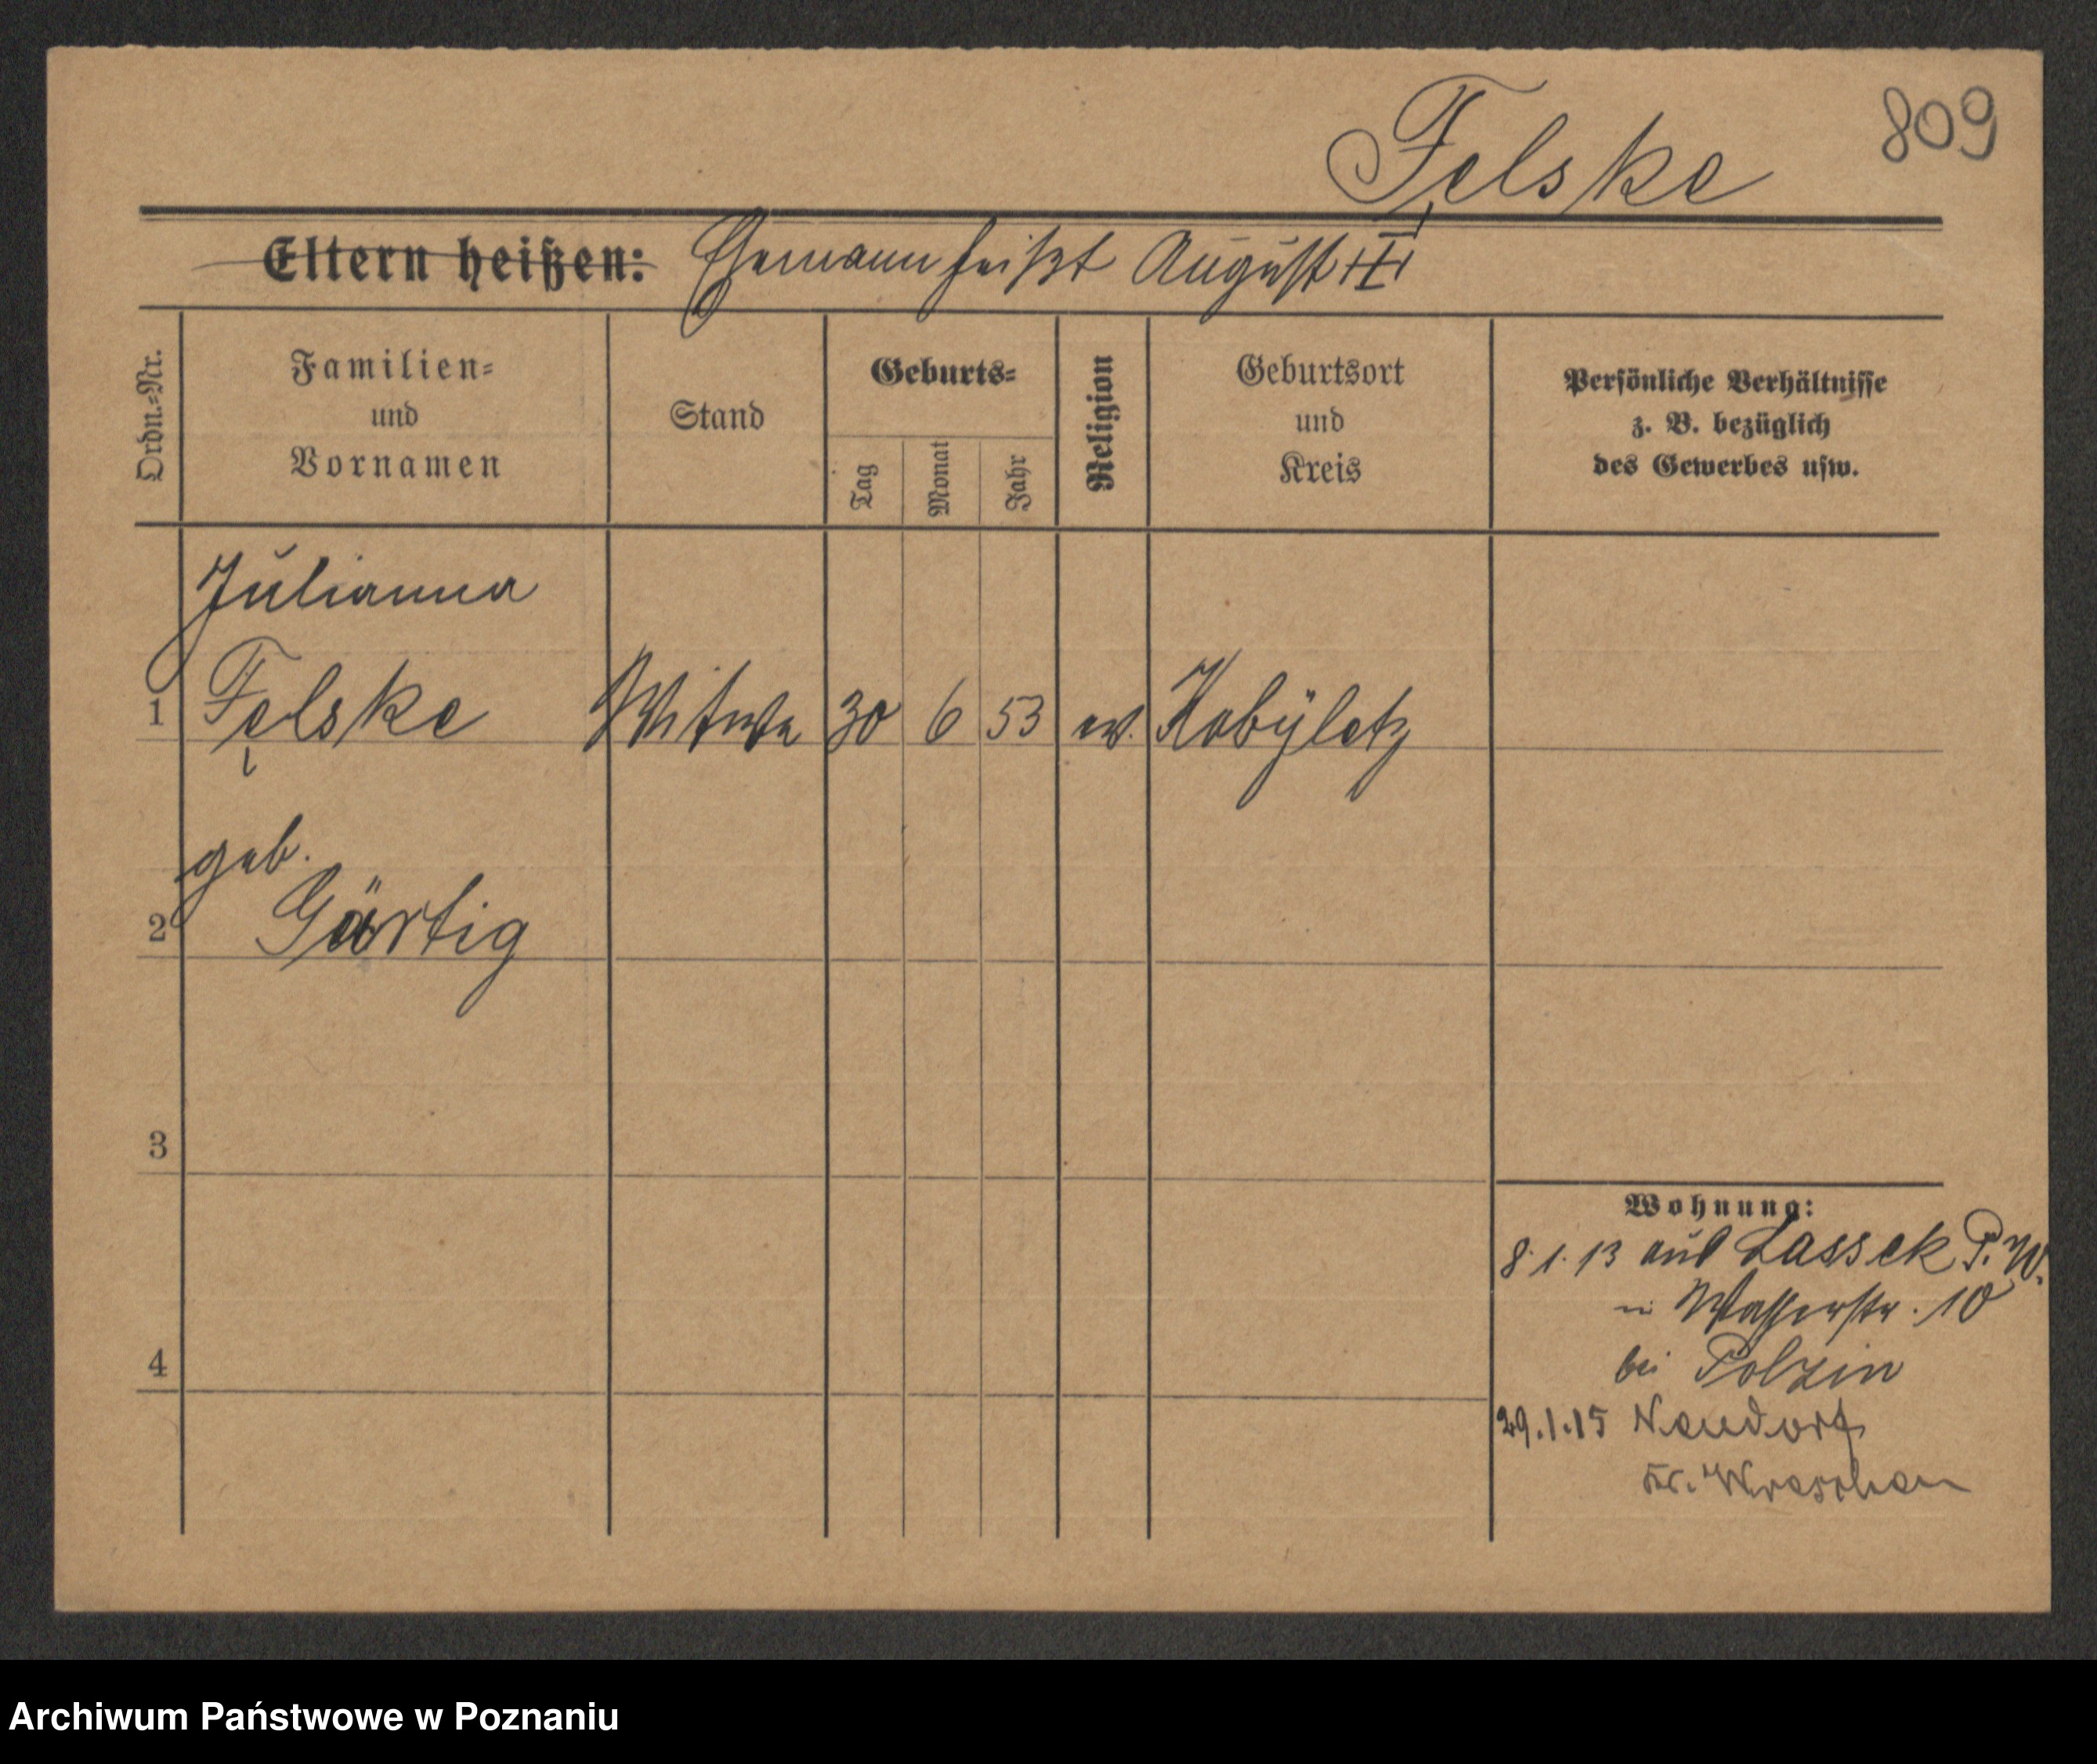 Felske
809
Eltern heißen: Ehemann heißt August
Ordn.-Nr.
Familien-
und
Vornamen
Stand
Geburts-
Tag
Monat
Jahr
Religion
Geburtsort
und
Kreis
Persönliche Verhältnisse
z. B. bezüglich
des Gewerbes usw.
Julianna
1 Felske Witwe 30 6 53 ev. Kobyletz
geb.
2 Gärtig
3
Wohnung:
8.1.13 aus Lassek P. W.
n Wasserstr. 10
bei Polzin
4
29.1.15 Neudorf
Kr. Wreschen
Archiwum Państwowe w Poznaniu